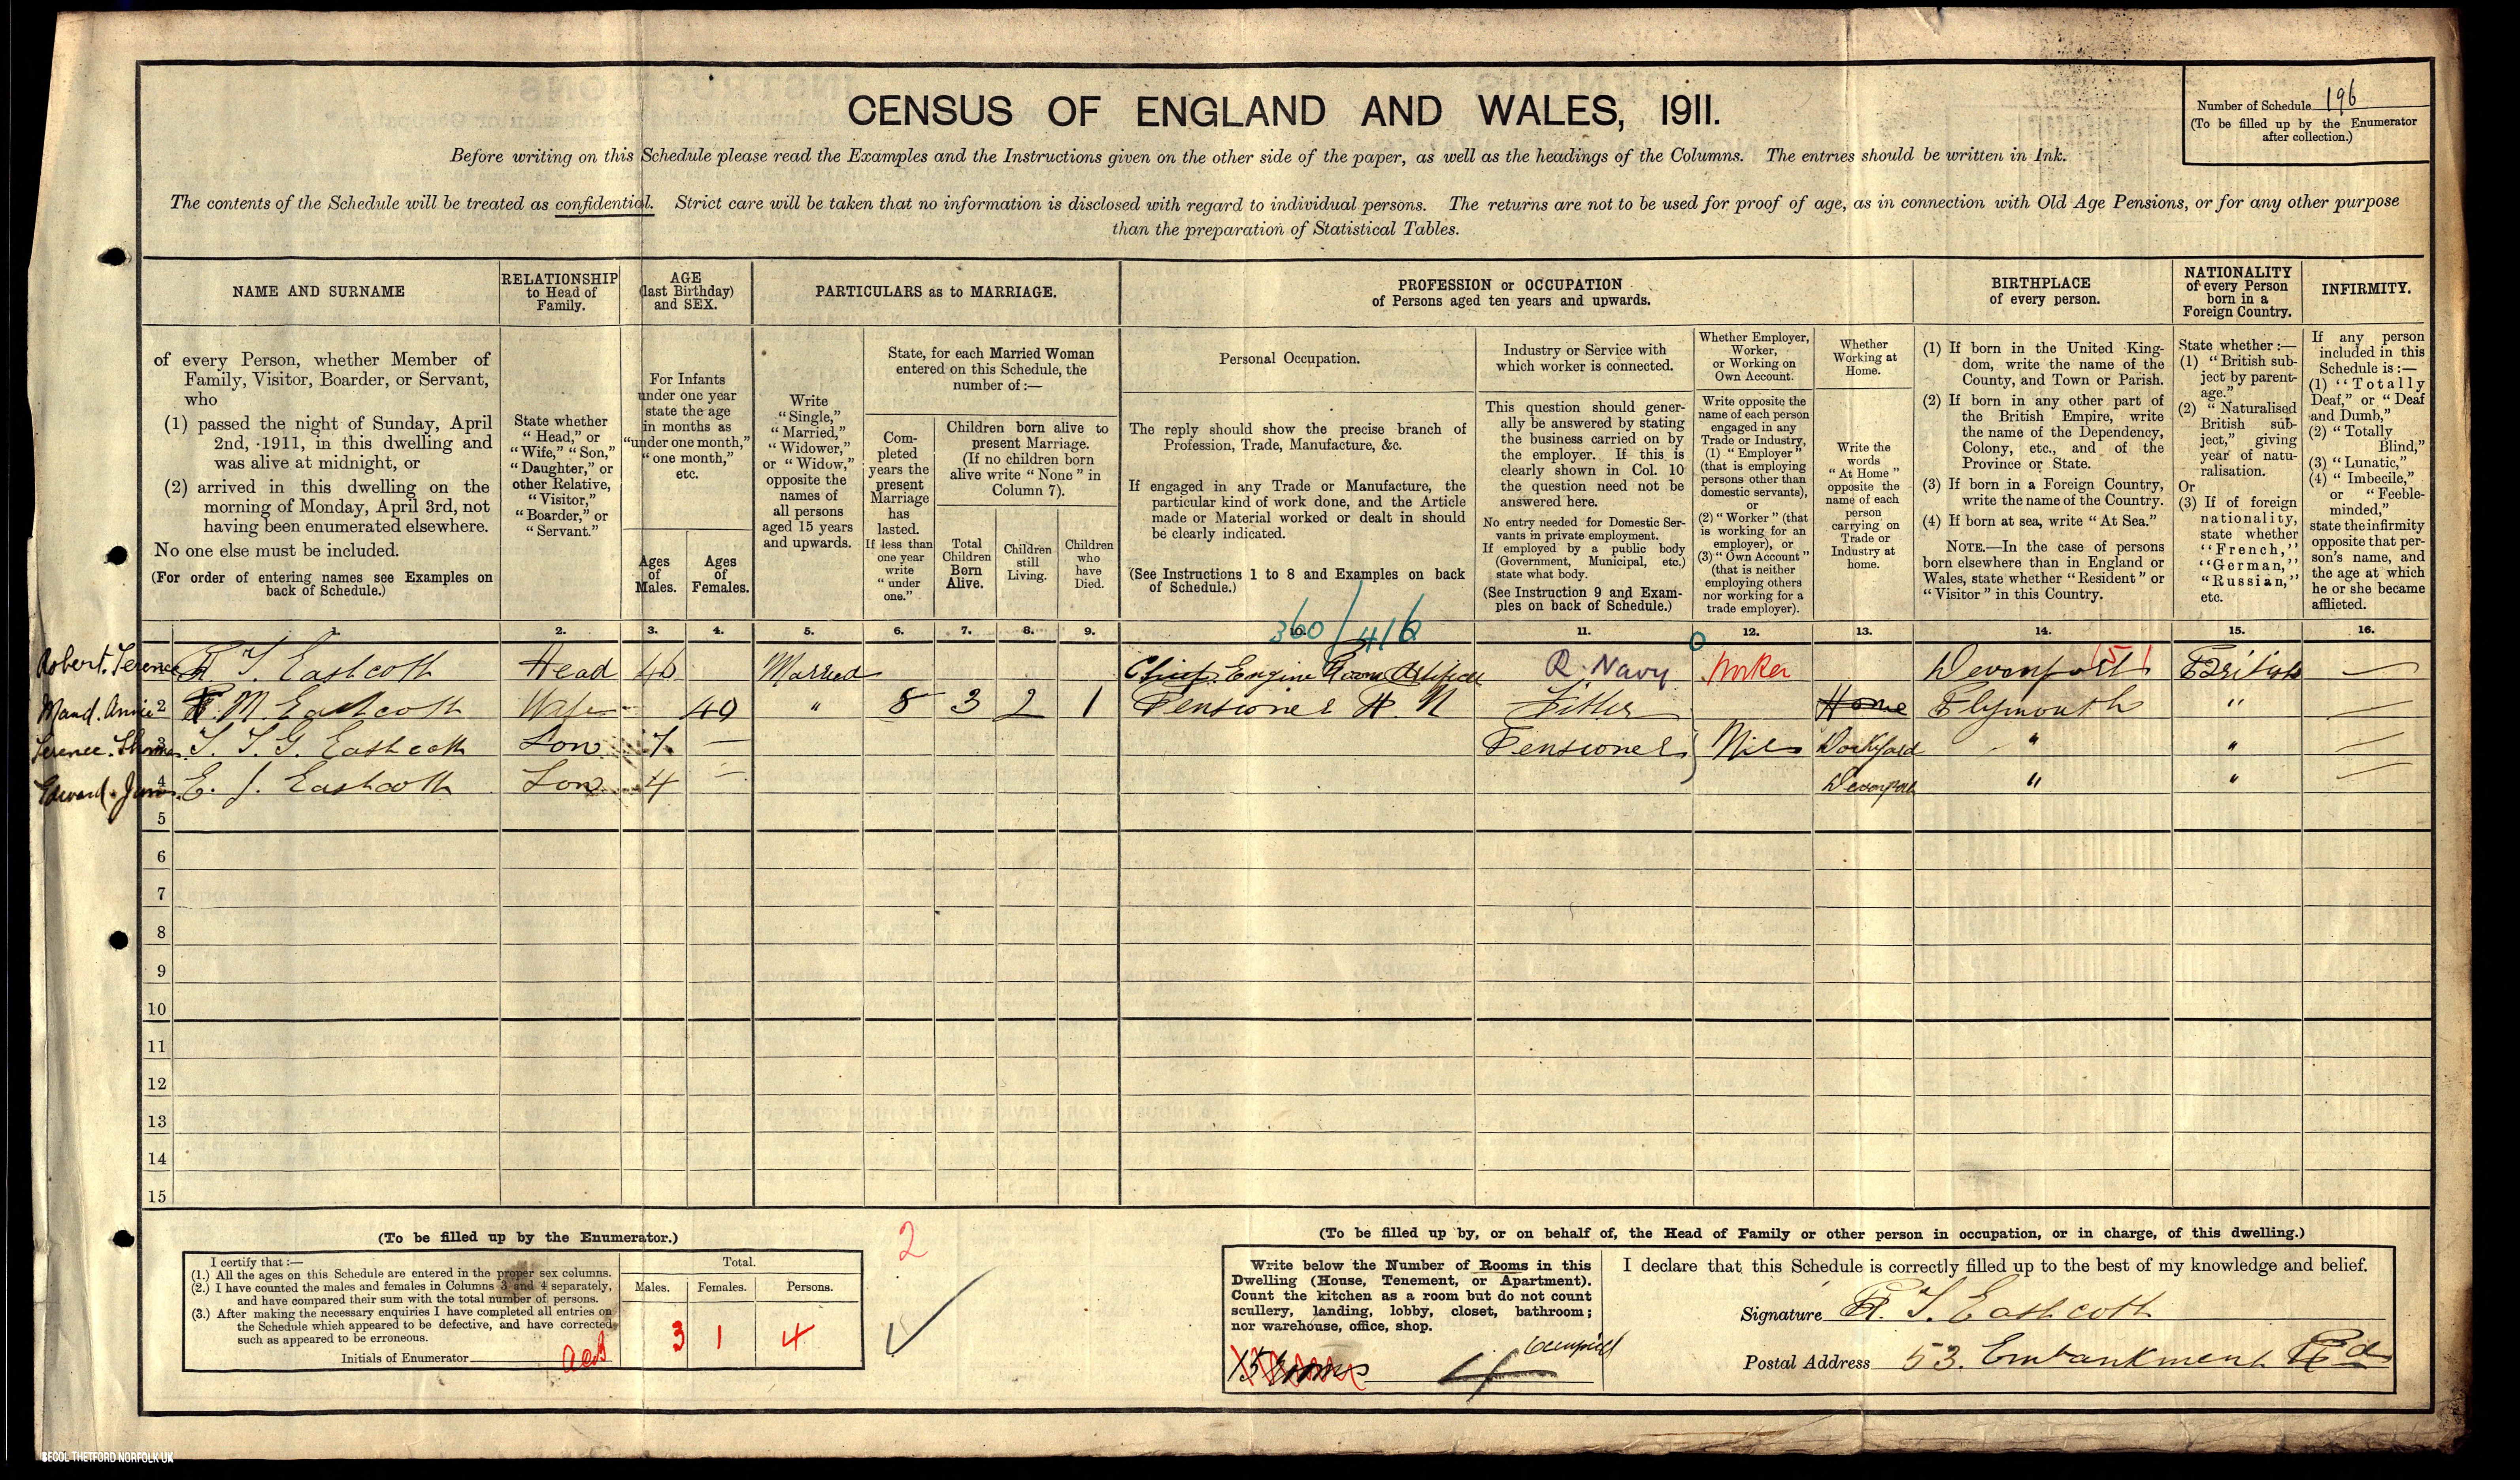 CENSUS OF ENGLAND AND WALES, 1911.
Number of Schedule 196
(To be filled up by the Enumerator
after collection.)
Before writing on this Schedule please read the Examples and the Instructions given on the other side of the paper, as well as the headings of the Columns. The entries should be written in Ink.
The contents of the Schedule will be treated as confidential. Strict care will be taken that no information is disclosed with regard to individual persons. The returns are not to be used for proof of age, as in connection with Old Age Pensions, or for any other purpose
than the preparation of Statistical Tables.
NAME AND SURNAME
of every Person, whether Member of
Family, Visitor, Boarder, or Servant,
who
(1) passed the night of Sunday, April
2nd, 1911, in this dwelling and
was alive at midnight, or
(2) arrived in this dwelling on the
morning of Monday, April 3rd, not
having been enumerated elsewhere.
No one else must be included.
(For order of entering names see Examples on
back of Schedule.)
RELATIONSHIP
to Head of
Family.
State whether
"Head," or
"Wife," "Son,"
"Daughter," or
other Relative,
"Visitor,"
"Boarder," or
"Servant."
AGE
(last Birthday)
and SEX.
For Infants
under one year
state the age
in months as
"under one month,"
"one month,"
etc.
Ages
of
Males.
Ages
of
Females.
PARTICULARS as to MARRIAGE.
Write
"Single,"
"Married,"
"Widower,"
or "Widow,"
opposite the
names of
all persons
aged 15 years
and upwards.
State, for each Married Woman
entered on this Schedule, the
number of:—
Com-
pleted
years the
present
Marriage
has
lasted.
If less than
one year
write
"under
one."
Children born alive to
present Marriage.
(If no children born
alive write "None" in
Column 7).
Total
Children
Born
Alive.
Children
still
Living.
Children
who
have
Died.
PROFESSION or OCCUPATION
of Persons aged ten years and upwards.
Personal Occupation.
The reply should show the precise branch of
Profession, Trade, Manufacture, &c.
If engaged in any Trade or Manufacture, the
particular kind of work done, and the Article
made or Material worked or dealt in should
be clearly indicated.
(See Instructions 1 to 8 and Examples on back
of Schedule.)
Industry or Service with
which worker is connected.
This question should gener-
ally be answered by stating
the business carried on by
the employer. If this is
clearly shown in Col. 10
the question need not be
answered here.
No entry needed for Domestic Ser-
vants in private employment.
If employed by a public body
(Government, Municipal, etc.)
state what body.
(See Instruction 9 and Exam-
ples on back of Schedule.)
Whether Employer,
Worker,
or Working on
Own Account.
Write opposite the
name of each person
engaged in any
Trade or Industry,
(1) "Employer"
(that is employing
persons other than
domestic servants),
or
(2) "Worker" (that
is working for an
employer), or
(3) "Own Account"
(that is neither
employing others
nor working for a
trade employer).
Whether
Working at
Home.
Write the
words
"At Home"
opposite the
name of each
person
carrying on
Trade or
Industry at
home.
BIRTHPLACE
of every person.
(1) If born in the United King-
dom, write the name of the
County, and Town or Parish.
(2) If born in any other part of
the British Empire, write
the name of the Dependency,
Colony, etc., and of the
Province or State.
(3) If born in a Foreign Country,
write the name of the Country.
(4) If born at sea, write "At Sea."
NOTE.—In the case of persons
born elsewhere than in England or
Wales, state whether "Resident" or
"Visitor" in this Country.
NATIONALITY
of every Person
born in a
Foreign Country.
State whether:—
(1) "British sub-
ject by parent-
age."
(2) "Naturalised
British sub-
ject," giving
year of natu-
ralisation.
Or
(3) If of foreign
nationality,
state whether
"French,"
"German,"
"Russian,"
etc.
INFIRMITY.
If any person
included in this
Schedule is:—
(1) "Totally
Deaf," or "Deaf
and Dumb,"
(2) "Totally
Blind,"
(3) "Lunatic,"
(4) "Imbecile,"
or "Feeble-
minded,"
state the infirmity
opposite that per-
son's name, and
the age at which
he or she became
afflicted.
1. 2. 3. 4. 5. 6. 7. 8. 9. 10. 11. 12. 13. 14. 15. 16.
360/416 0
Robert. Terence R T. Eastcott Head 46 Married Chief Engine Room Artificer R. Navy Worker Devonport 51 British —
Maud. Annie 2 M. Eastcott Wife 40 " 8 3 2 1 Pensioner R. N Fitter Home Plymouth " —
Terence. Thomas 3 T. T. G. Eastcott Son 7 — Pensioner Nil Dockyard " " —
Edward. James 4 E. J. Eastcott Son 4 — Devonport " " —
5
6
7
8
9
10
11
12
13
14
15
(To be filled up by the Enumerator.)
I certify that:—
(1.) All the ages on this Schedule are entered in the proper sex columns.
(2.) I have counted the males and females in Columns 3 and 4 separately,
and have compared their sum with the total number of persons.
(3.) After making the necessary enquiries I have completed all entries on
the Schedule which appeared to be defective, and have corrected
such as appeared to be erroneous.
Initials of Enumerator
Total.
Males. Females. Persons.
3 1 4
2
(To be filled up by, or on behalf of, the Head of Family or other person in occupation, or in charge, of this dwelling.)
Write below the Number of Rooms in this
Dwelling (House, Tenement, or Apartment).
Count the kitchen as a room but do not count
scullery, landing, lobby, closet, bathroom;
nor warehouse, office, shop.
15 rooms 4 occupied
I declare that this Schedule is correctly filled up to the best of my knowledge and belief.
Signature R. T. Eastcott
Postal Address 53. Embankment Rd
SECOL THETFORD NORFOLK UK